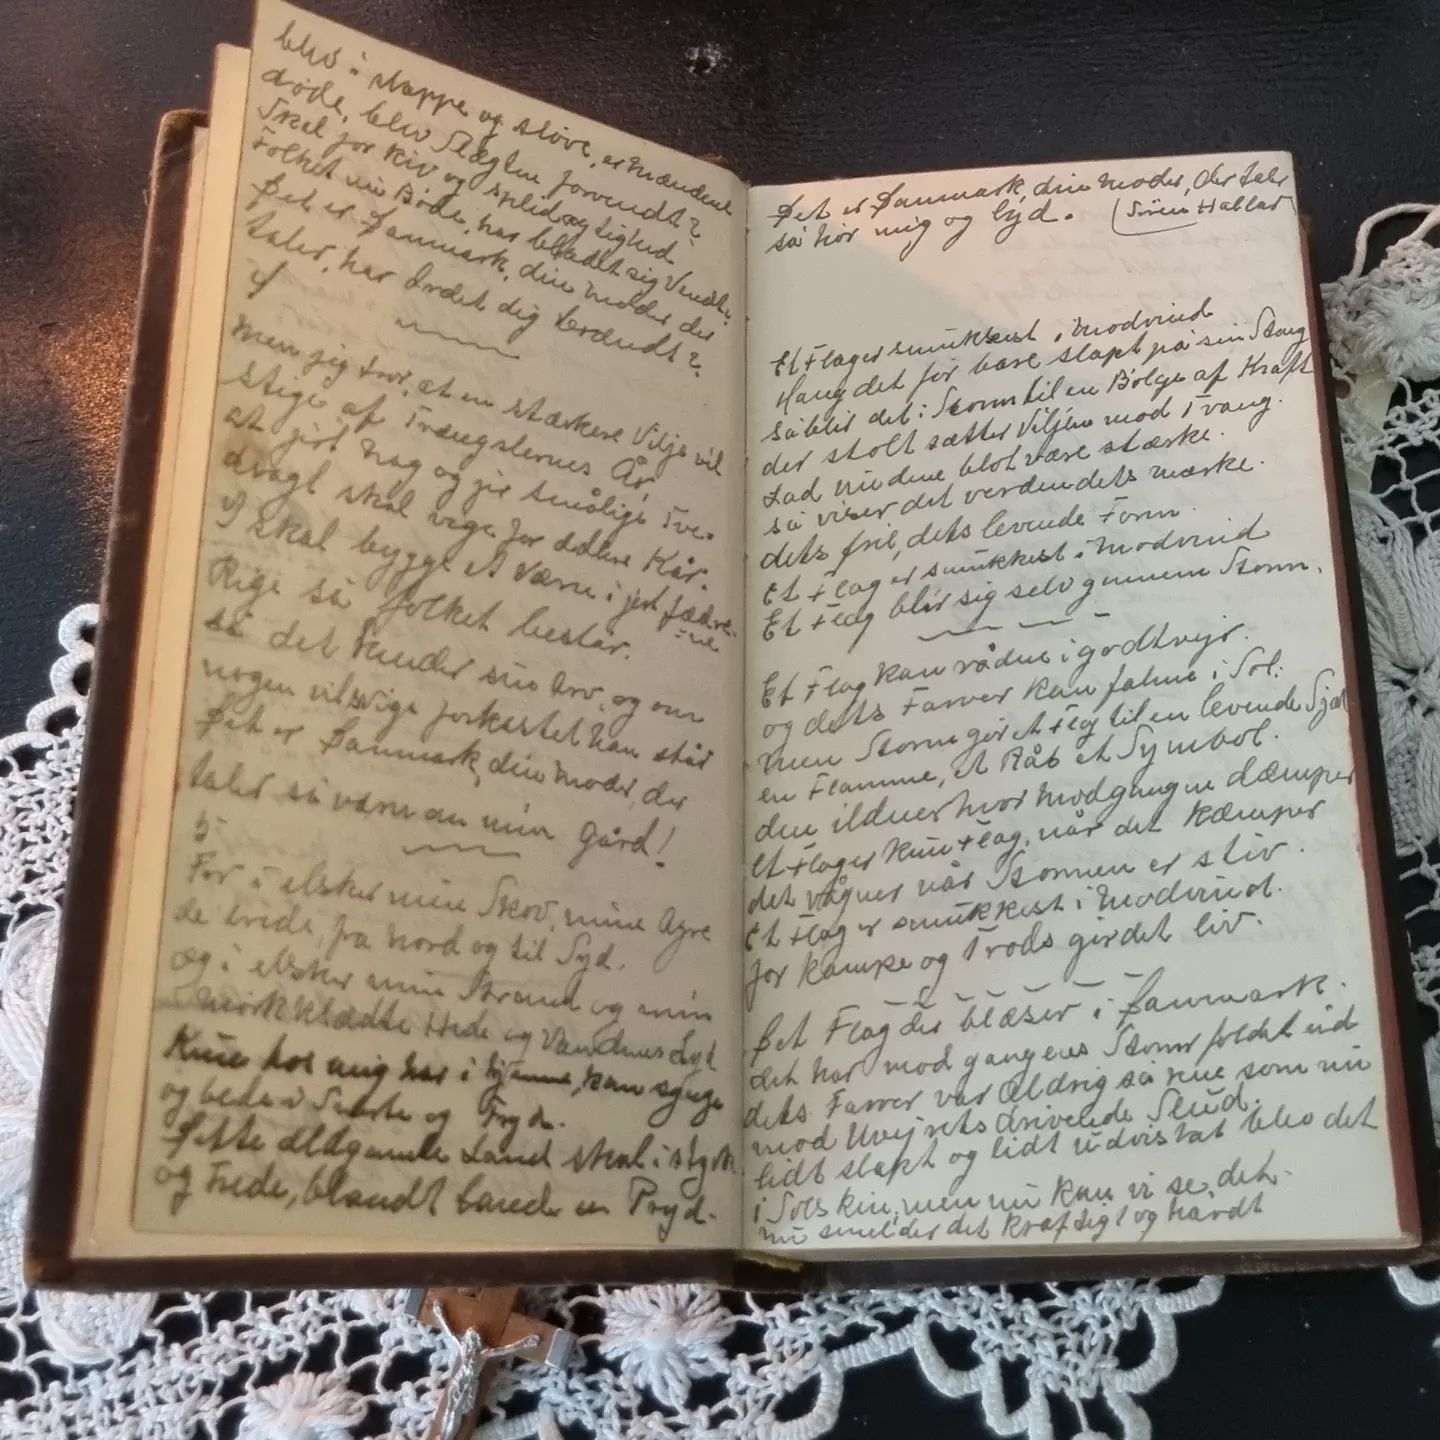 blev i slappe og sløve, er Mændene
døde, blev Slægten forvendt?
Skal jor Kiv og splidagtighed
Folket nu Bøde, har bladet sig Vendt?
Det er Danmark, din Moder der
taler, har Ordet dig tændt?
4
Men jeg tror, at en stærkere Vilje vil
stige af Trængslernes År,
at jert Nag og jer smålige Tve-
dragt skal vige for ældre Kår.
I skal bygge et Værn i jert fædre-
ne
Rige så folket består.
så det kender sin Arv, og om
nogen vil svige forkastet han står
Det er Danmark, din Moder, der
taler så værn om min Gård!
5
For i elsker min Skov, mine Agre
de brede, fra Nord og til Syd.
og i elsker min Strand og min
mørkklædte Hede og Vandenes Lyd
Kun hos mig har i hjemme, kan synge
og bede i Smerte og Fryd.
Dette ældgamle Land skal i styrke
og frede, blandt Lande en Pryd.
Det er Danmark, din Moder, der taler
så hør mig og lyd. (Sören Hallar)
Et Flag er smukkest i Modvind
Hang det før bare slapt på sin Stang
så blir det i Storm til en Bølge af Kraft
der stolt sætter Viljen mod Tvang.
Lad Vindene blot være stærke.
så viser det verden dets mærke.
dets frie, dets levende Form.
Et Flag er smukkest i Modvind
Et Flag blir sig selv gennem Storm.
Et Flag kan rådne i godtvejr.
og dets Farver kan falme i Sol:
men Storm gør et Flag til en levende Sjæl
en Flamme, et Råb et Symbol.
den ildner hvor Modgangen dæmper
Et Flag er kun Flag, når det Kæmper
det vågner når Stormen er stiv.
Et Flag er smukkest i Modvind.
for Kampe og Trods gir det liv.
Det Flag der blæser i Danmark.
det har modgangens Storm foldet ud
dets Farver var Aldrig så rene som nu
mod Uvejrets drivende Slud.
lidt slapt og lidt udvisket blev det
i Solskin, men nu kan vi se, det.
nu smelder det kraftigt og hårdt